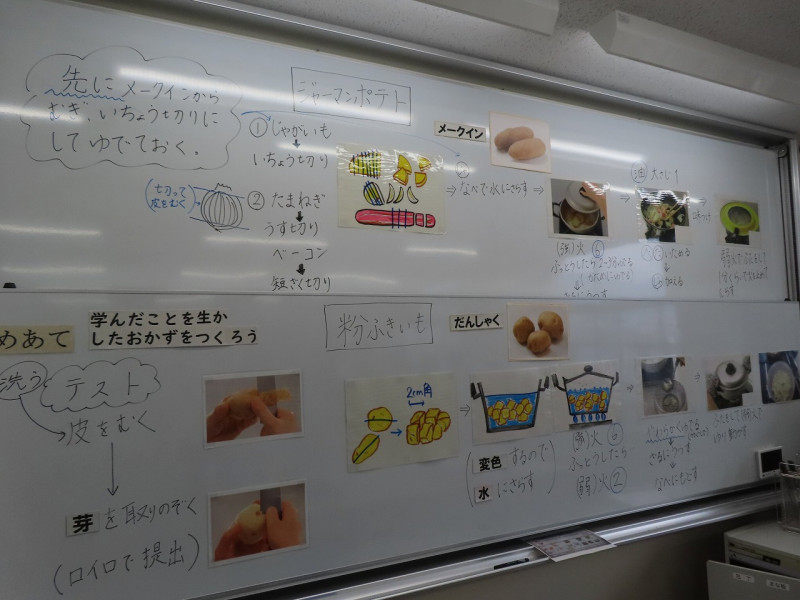 先にメークインから
むき、いちょう切りに
してゆでておく。
ジャーマンポテト
メークイン
①じゃがいも
いちょう切り
②たまねぎ
うす切り
ベーコン
短ざく切り
(七切って
皮をむく)
⇒なべで水にさらす⇒
(強)火⑥
ふっとうしたら
(強)大さじ1
いためる
加える
めあて
学んだことを生か
したおかずをつくろう
粉ふきいも
だんしゃく
洗う
テスト
皮をむく
芽を取りのぞく
(ロイロで提出)
2cm角
(変色するので
水にさらす)
(強)火⑥
ふっとうしたら
(弱)火②
ざるにうつす
なべにもどす